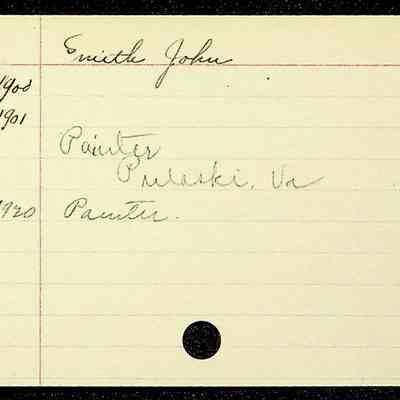 Smith John
1900
1901
Painter
Pulaski, Va
1920 Painter.